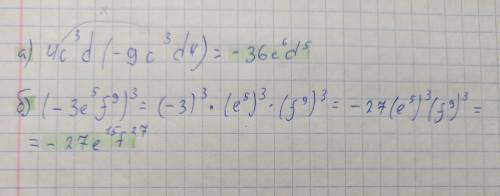 а) 4c³d(-9c³d4) = -36c⁶d⁵
б) (-3e⁵f⁹)³ = (-3)³ · (e⁵)³ · (f⁹)³ = -27(e⁵)³(f⁹)³ =
= -27e¹⁵f²⁷